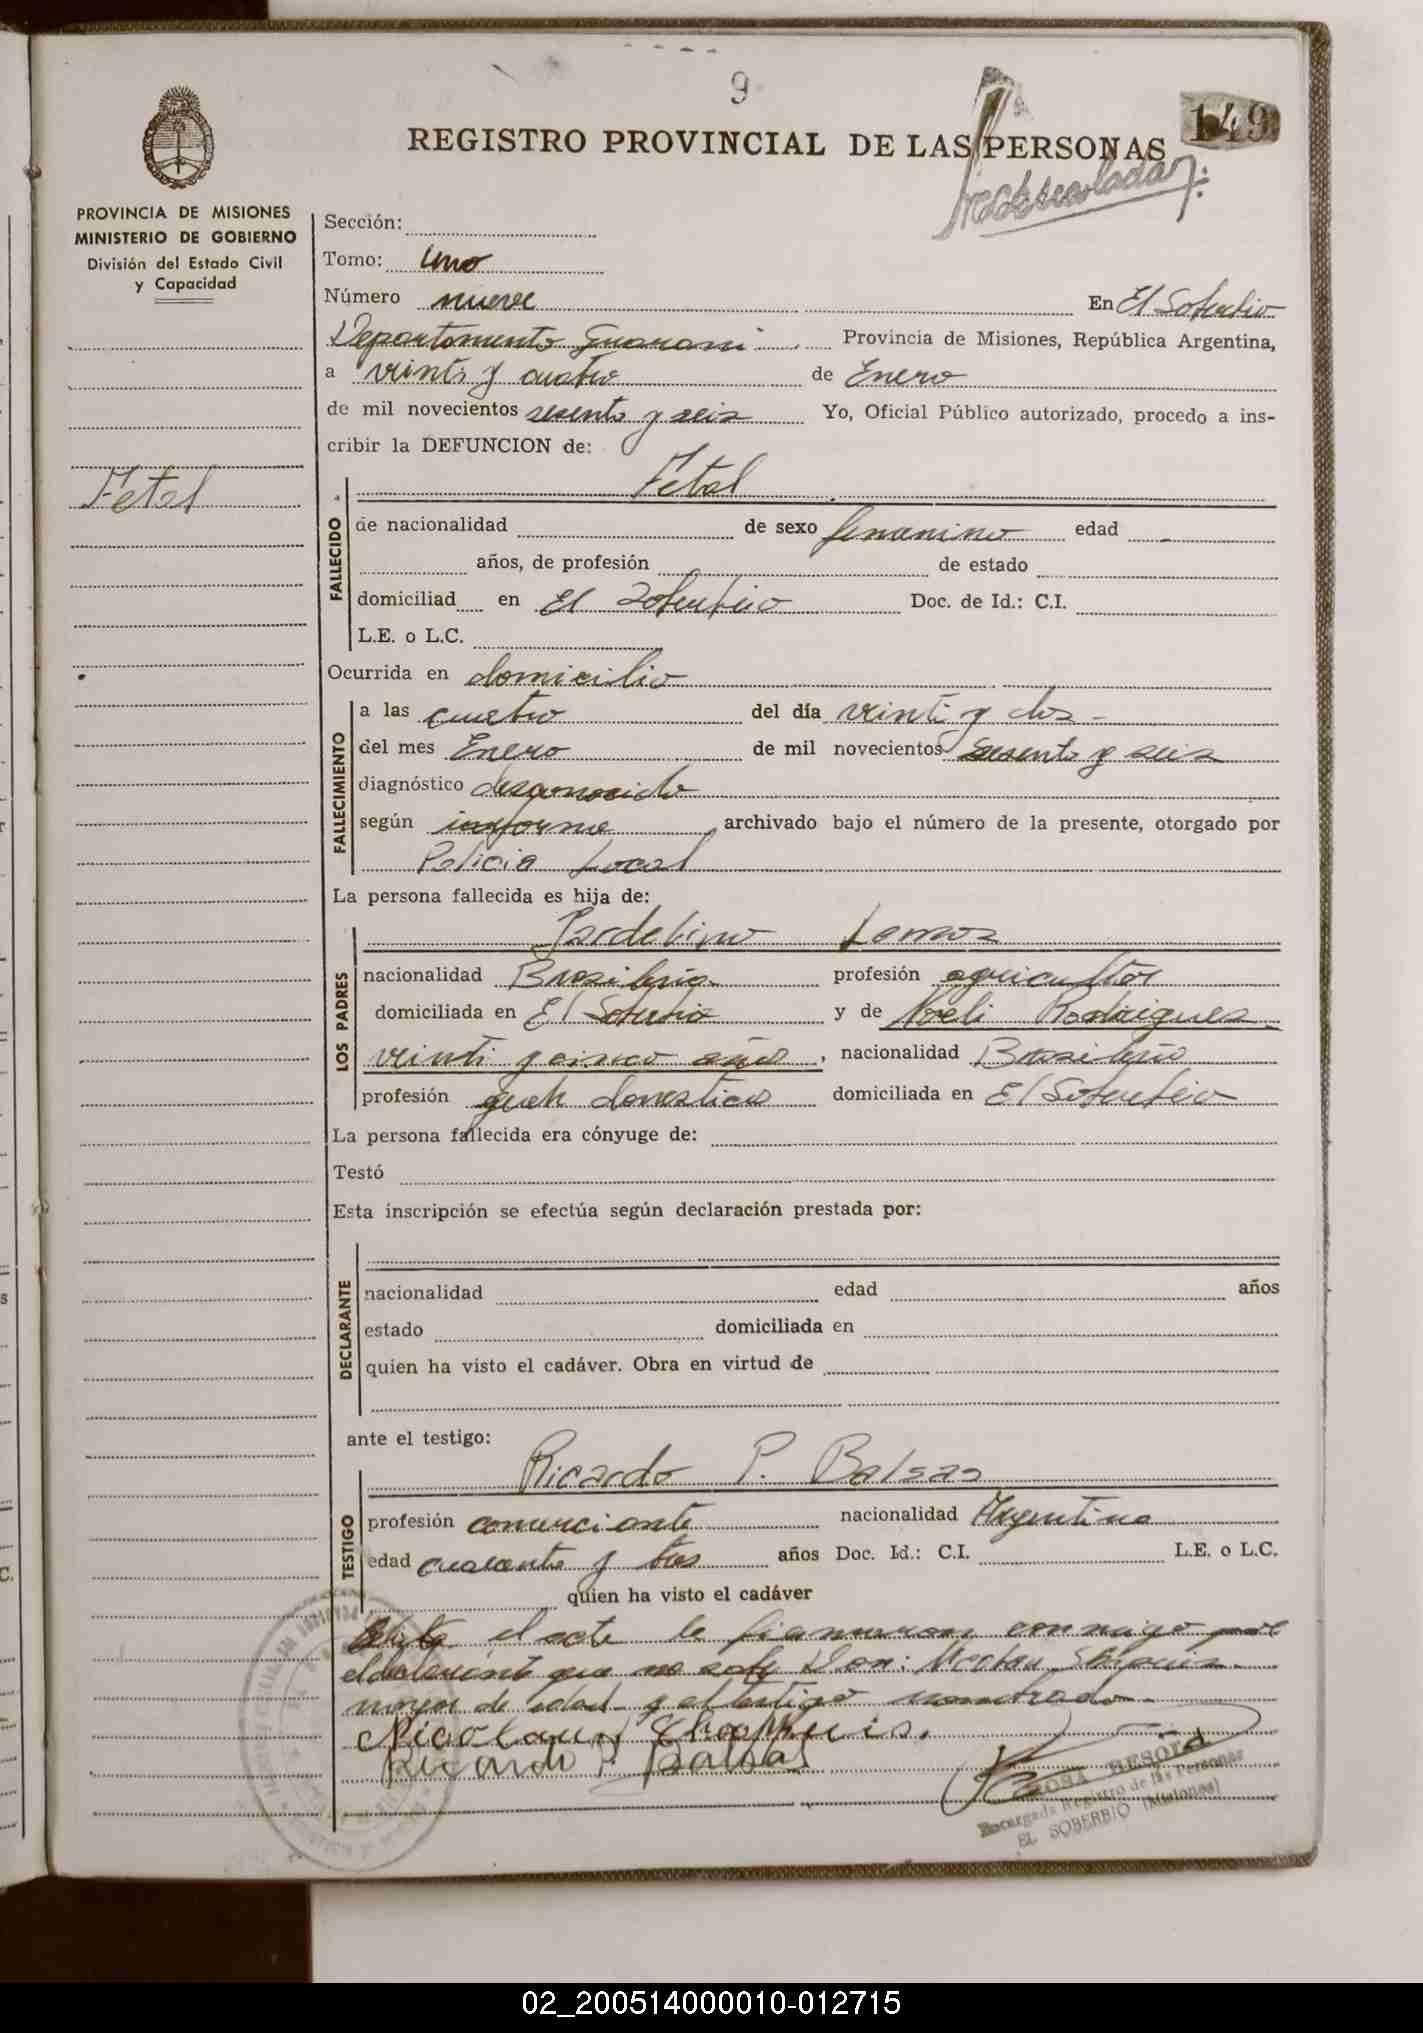 9
149
REGISTRO PROVINCIAL DE LAS PERSONAS
PROVINCIA DE MISIONES
MINISTERIO DE GOBIERNO
División del Estado Civil
y Capacidad
Fetal
Sección:
Tomo: uno
Número nueve En El Soberbio
Departamento Guarani Provincia de Misiones, República Argentina,
a veinti y cuatro de Enero
de mil novecientos sesenta y seis Yo, Oficial Público autorizado, procedo a ins-
cribir la DEFUNCION de:
FALLECIDO
Fetal
de nacionalidad de sexo femenino edad
años, de profesión de estado
domiciliad en El Soberbio Doc. de Id.: C.I.
L.E. o L.C.
Ocurrida en domicilio
FALLECIMIENTO
a las cuatro del día veinti y dos
del mes Enero de mil novecientos sesenta y seis
diagnóstico desconocido
según informe archivado bajo el número de la presente, otorgado por
Policia Local
La persona fallecida es hija de:
LOS PADRES
Jardelino Lemos
nacionalidad Brasileña profesión agricultor
domiciliada en El Soberbio y de Noeli Rodrigues
veinti y cinco años, nacionalidad Brasileña
profesión queh domesticos domiciliada en El Soberbio
La persona fallecida era cónyuge de:
Testó
Esta inscripción se efectúa según declaración prestada por:
DECLARANTE
nacionalidad edad años
estado domiciliada en
quien ha visto el cadáver. Obra en virtud de
ante el testigo:
TESTIGO
Ricardo P. Balsas
profesión comerciante nacionalidad Argentina
edad cuarenta y tres años Doc. Id.: C.I. L.E. o L.C.
quien ha visto el cadáver
el acta la firmaron conmigo por
el declarante que no sabe Don:
mayor de edad y el testigo nombrado
Ricardo P. Balsas
ROSA BESOLD
Encargada Registro de las Personas
EL SOBERBIO (Misiones)
02_200514000010-012715